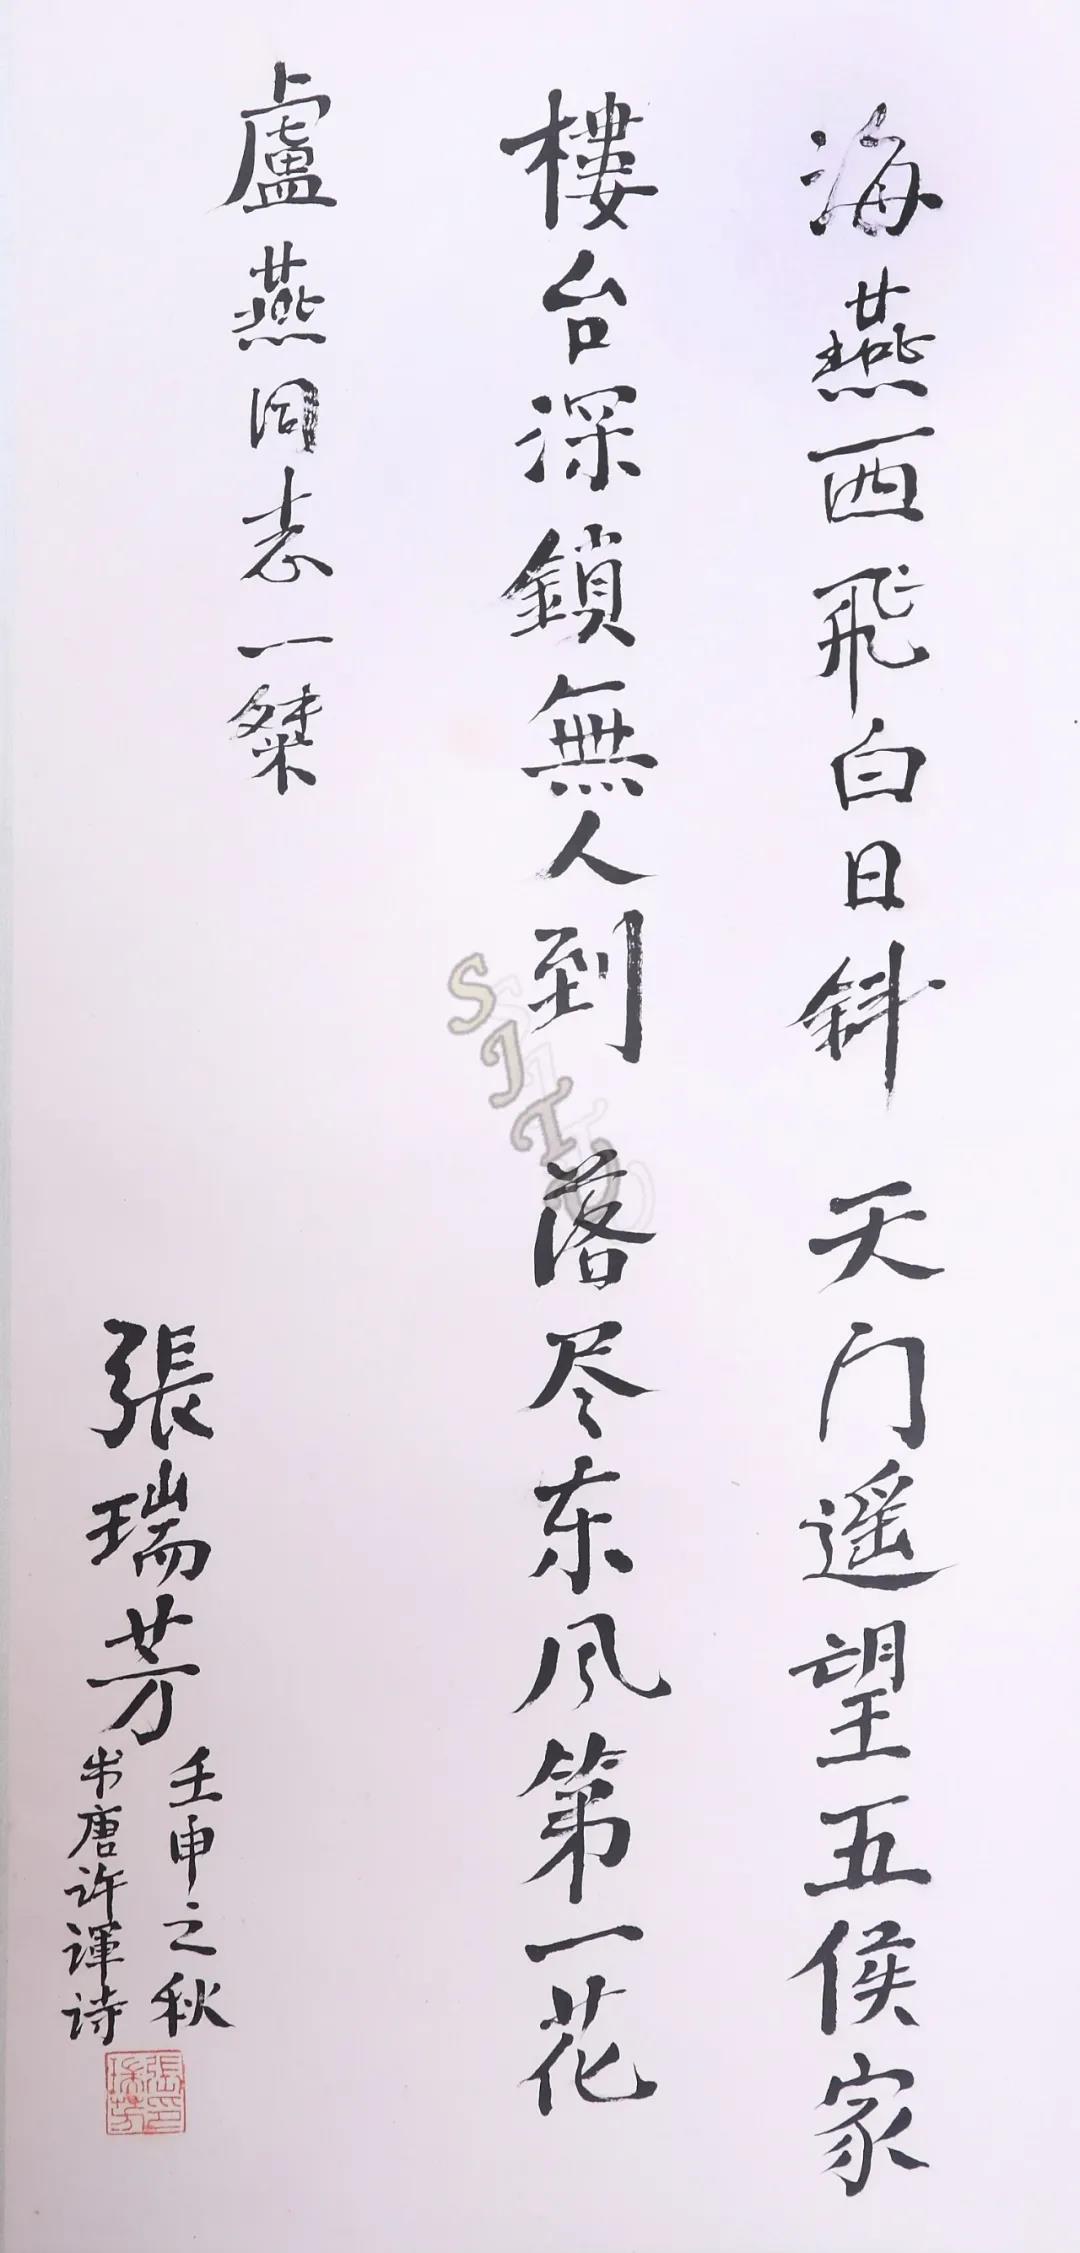 海燕西飛白日斜 天门遥望五侯家
楼台深鎖無人到 落尽东风第一花
盧燕同志一粲
張瑞芳
壬申之秋
书唐许渾诗
張瑞芳印
SITU